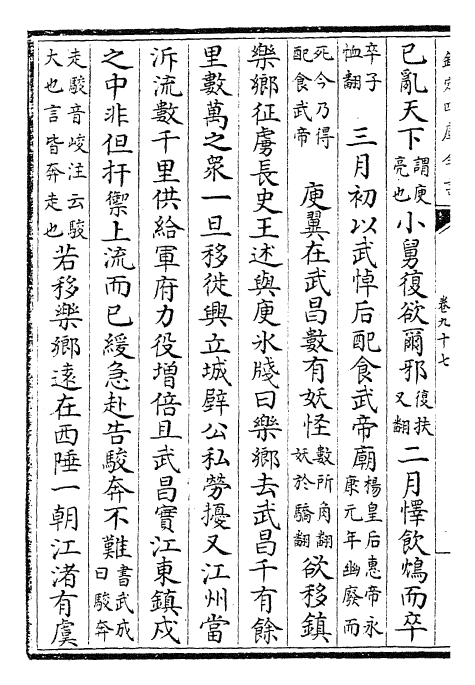 欽定四庫全書
卷九十七
已亂天下謂庾亮也小舅復欲爾邪復扶又翻二月懌飲鴆而卒
卒子恤翻三月初以武悼后配食武帝廟楊皇后惠帝永康元年幽廢而
死今乃得配食武帝庾翼在武昌數有妖怪數所角翻妖於驕翻欲移鎮
樂鄉征虜長史王述與庾氷牋曰樂鄉去武昌千有餘
里數萬之衆一旦移徙興立城壁公私勞擾又江州當
泝流數千里供給軍府力役增倍且武昌實江東鎮戍
之中非但扞禦上流而已緩急赴告駿奔不難書武成曰駿奔
走駿音峻注云駿大也言皆奔走也若移樂鄉遠在西陲一朝江渚有虞